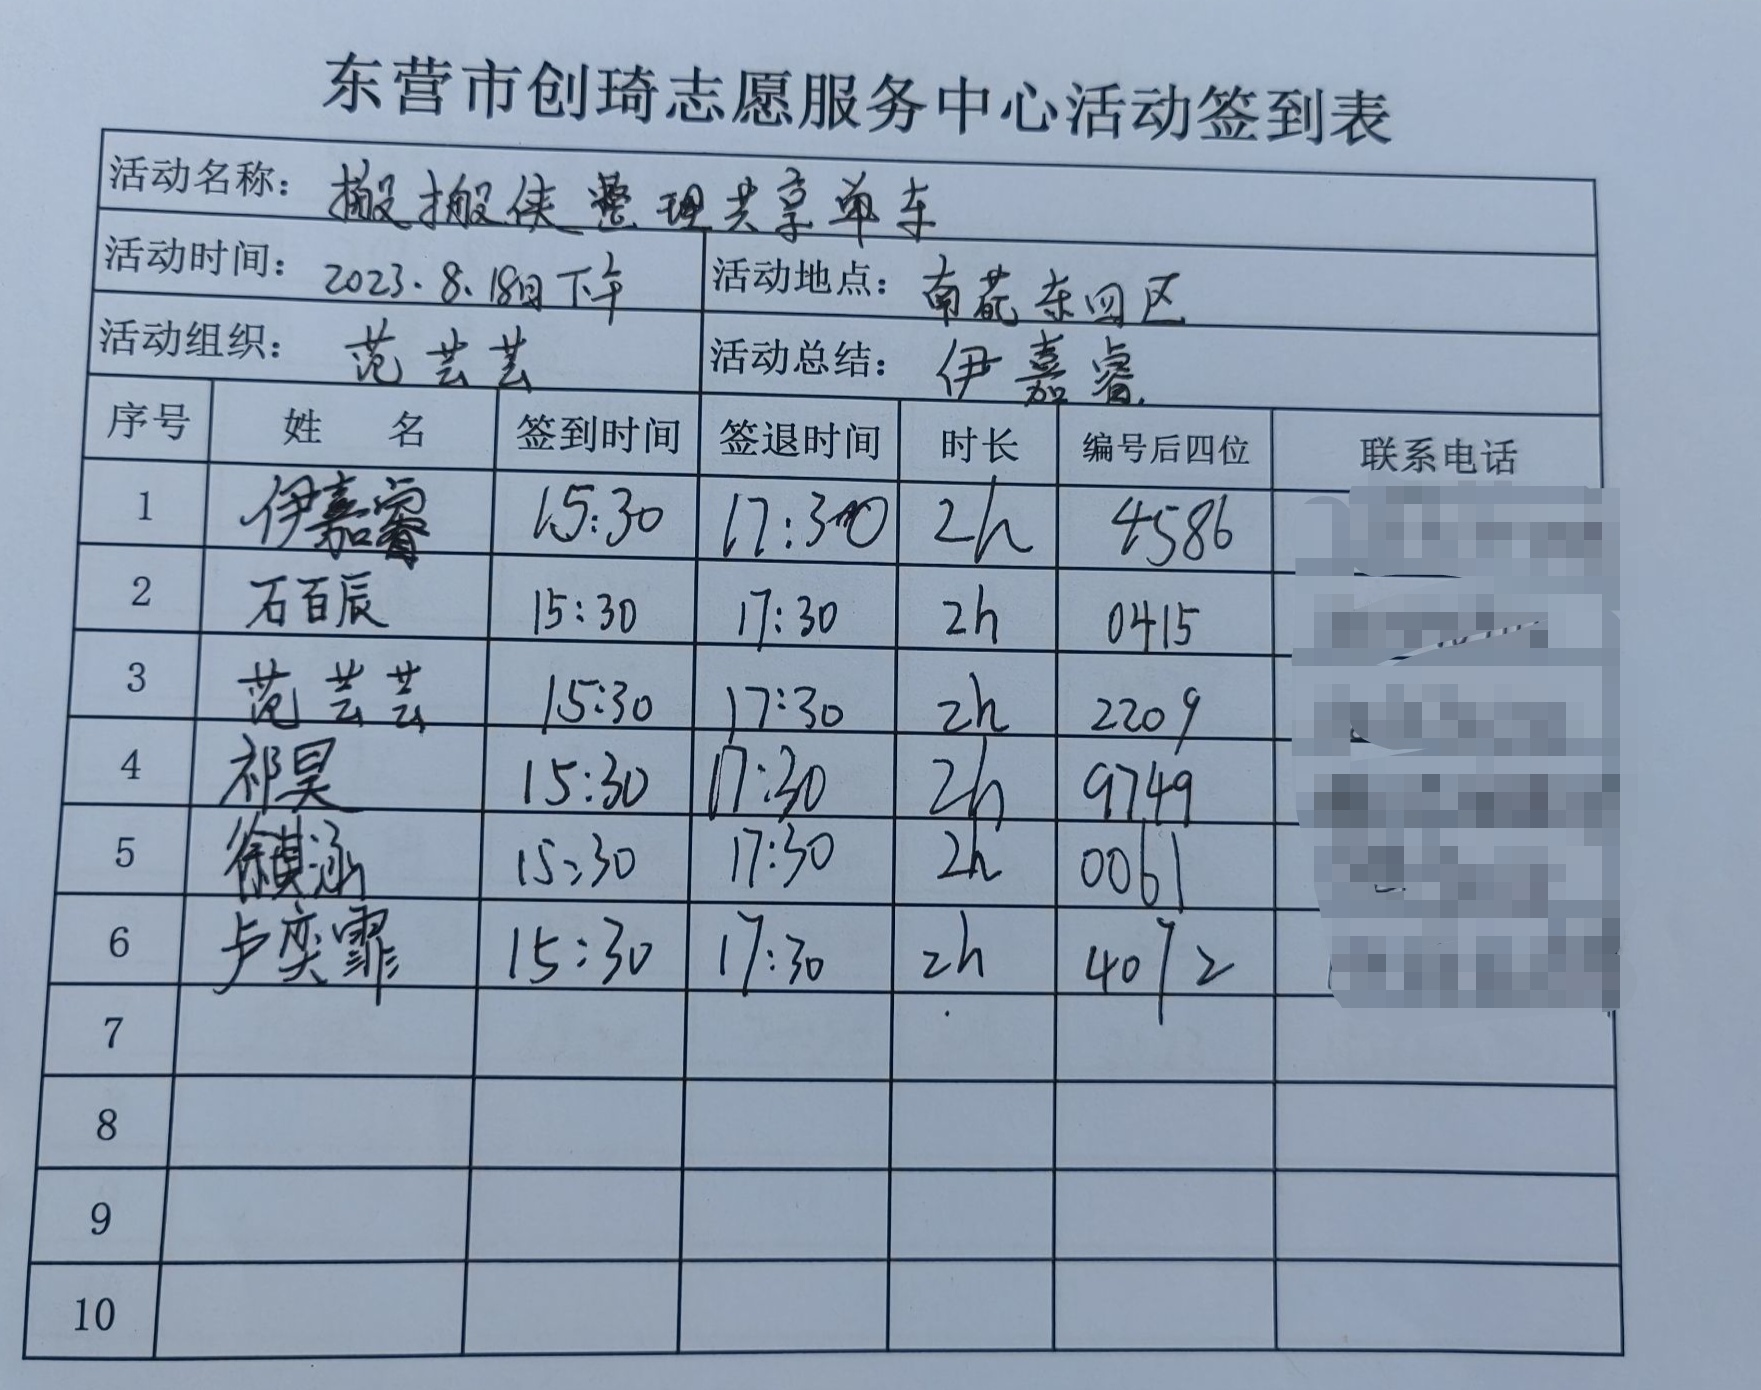 东营市创琦志愿服务中心活动签到表
活动名称： 搬搬侠整理共享单车
活动时间： 2023.8.18日下午 活动地点： 南苑东四区
活动组织： 范芸芸 活动总结： 伊嘉睿
序号 姓 名 签到时间 签退时间 时长 编号后四位 联系电话
1 伊嘉睿 15:30 17:30 2h 4586
2 石百辰 15:30 17:30 2h 0415
3 范芸芸 15:30 17:30 2h 2209
4 祁昊 15:30 17:30 2h 9749
5 徐其涵 15:30 17:30 2h 0061
6 卢奕霏 15:30 17:30 2h 4072
7
8
9
10